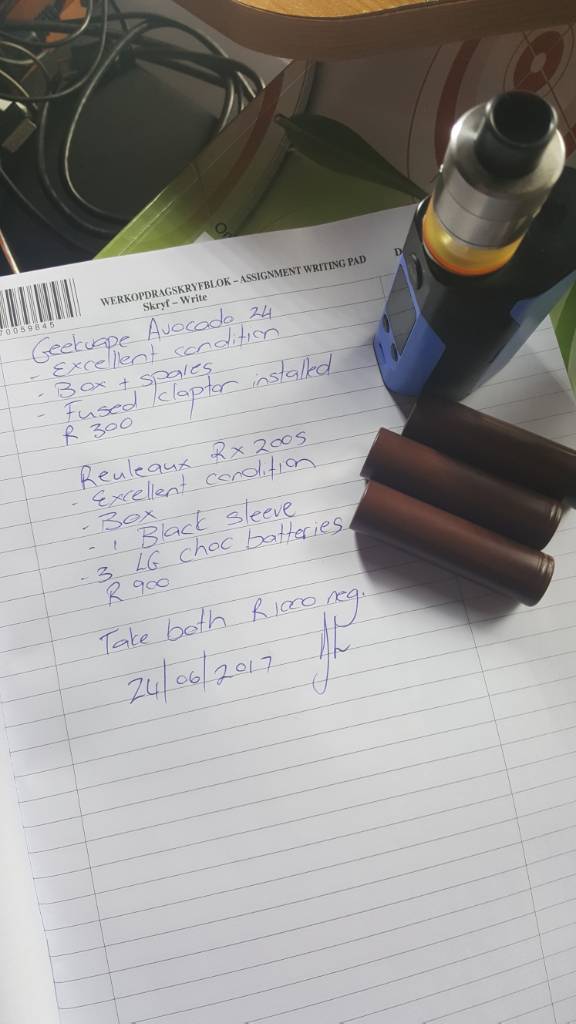 WERKOPDRAGSKRYFBLOK – ASSIGNMENT WRITING PAD
Skryf – Write
70059845
Geekvape Avocado 24
- Excellent condition
- Box + spares
- Fused clapton installed
R 300
Reuleaux Rx200s
- Excellent condition
- Box
- 1 Black sleeve
- 3 LG choc batteries
R 900
Take both R1000 neg.
24/06/2017